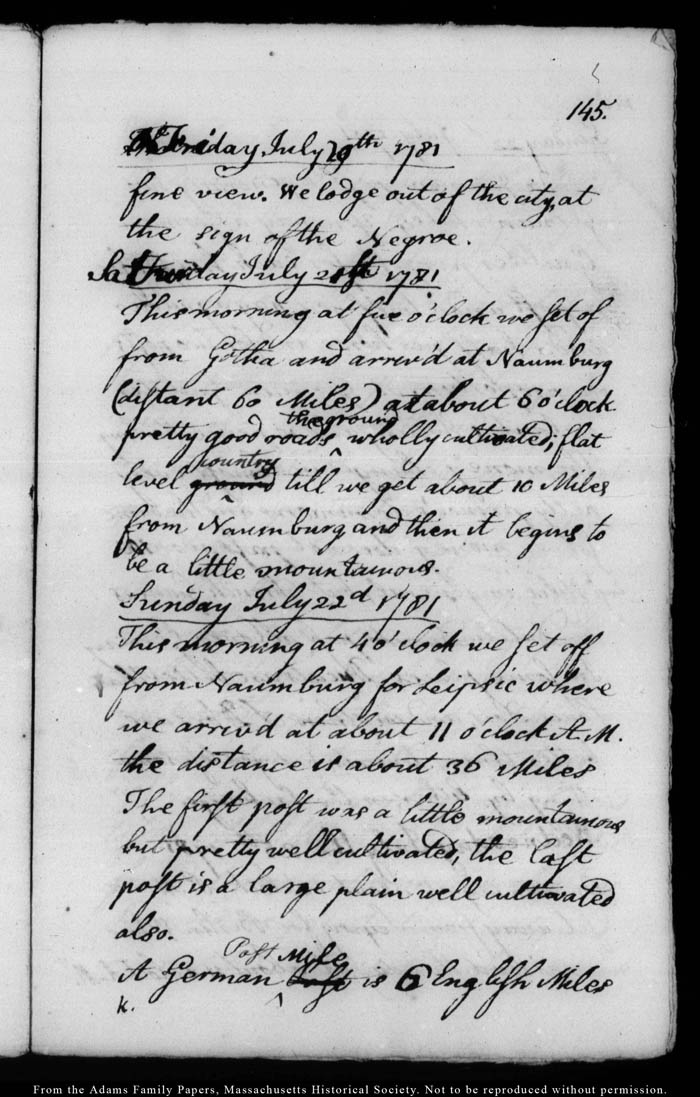 145.
Friday July 20th 1781
fine view. We lodge out of the city, at
the sign of the Negroe.
Saturday July 21st 1781
This morning at five o'clock we set of
from Gotha and arriv'd at Naumburg
(distant 60 Miles) at about 6 o'clock.
the ground
pretty good roads ‸ wholly cultivated; flat
country
level ground till we get about 10 Miles
from Naumburg and then it begins to
be a little mountainous.
Sunday July 22d 1781
This morning at 4 o'clock we set off
from Naumburg for Leipsic where
we arriv'd at about 11 o'clock A.M.
the distance is about 36 Miles
The first post was a little mountainous
but pretty well cultivated, the last
post is a large plain well cultivated
also.
Post Mile
A German ‸ is 6 English Miles
k.
From the Adams Family Papers, Massachusetts Historical Society. Not to be reproduced without permission.